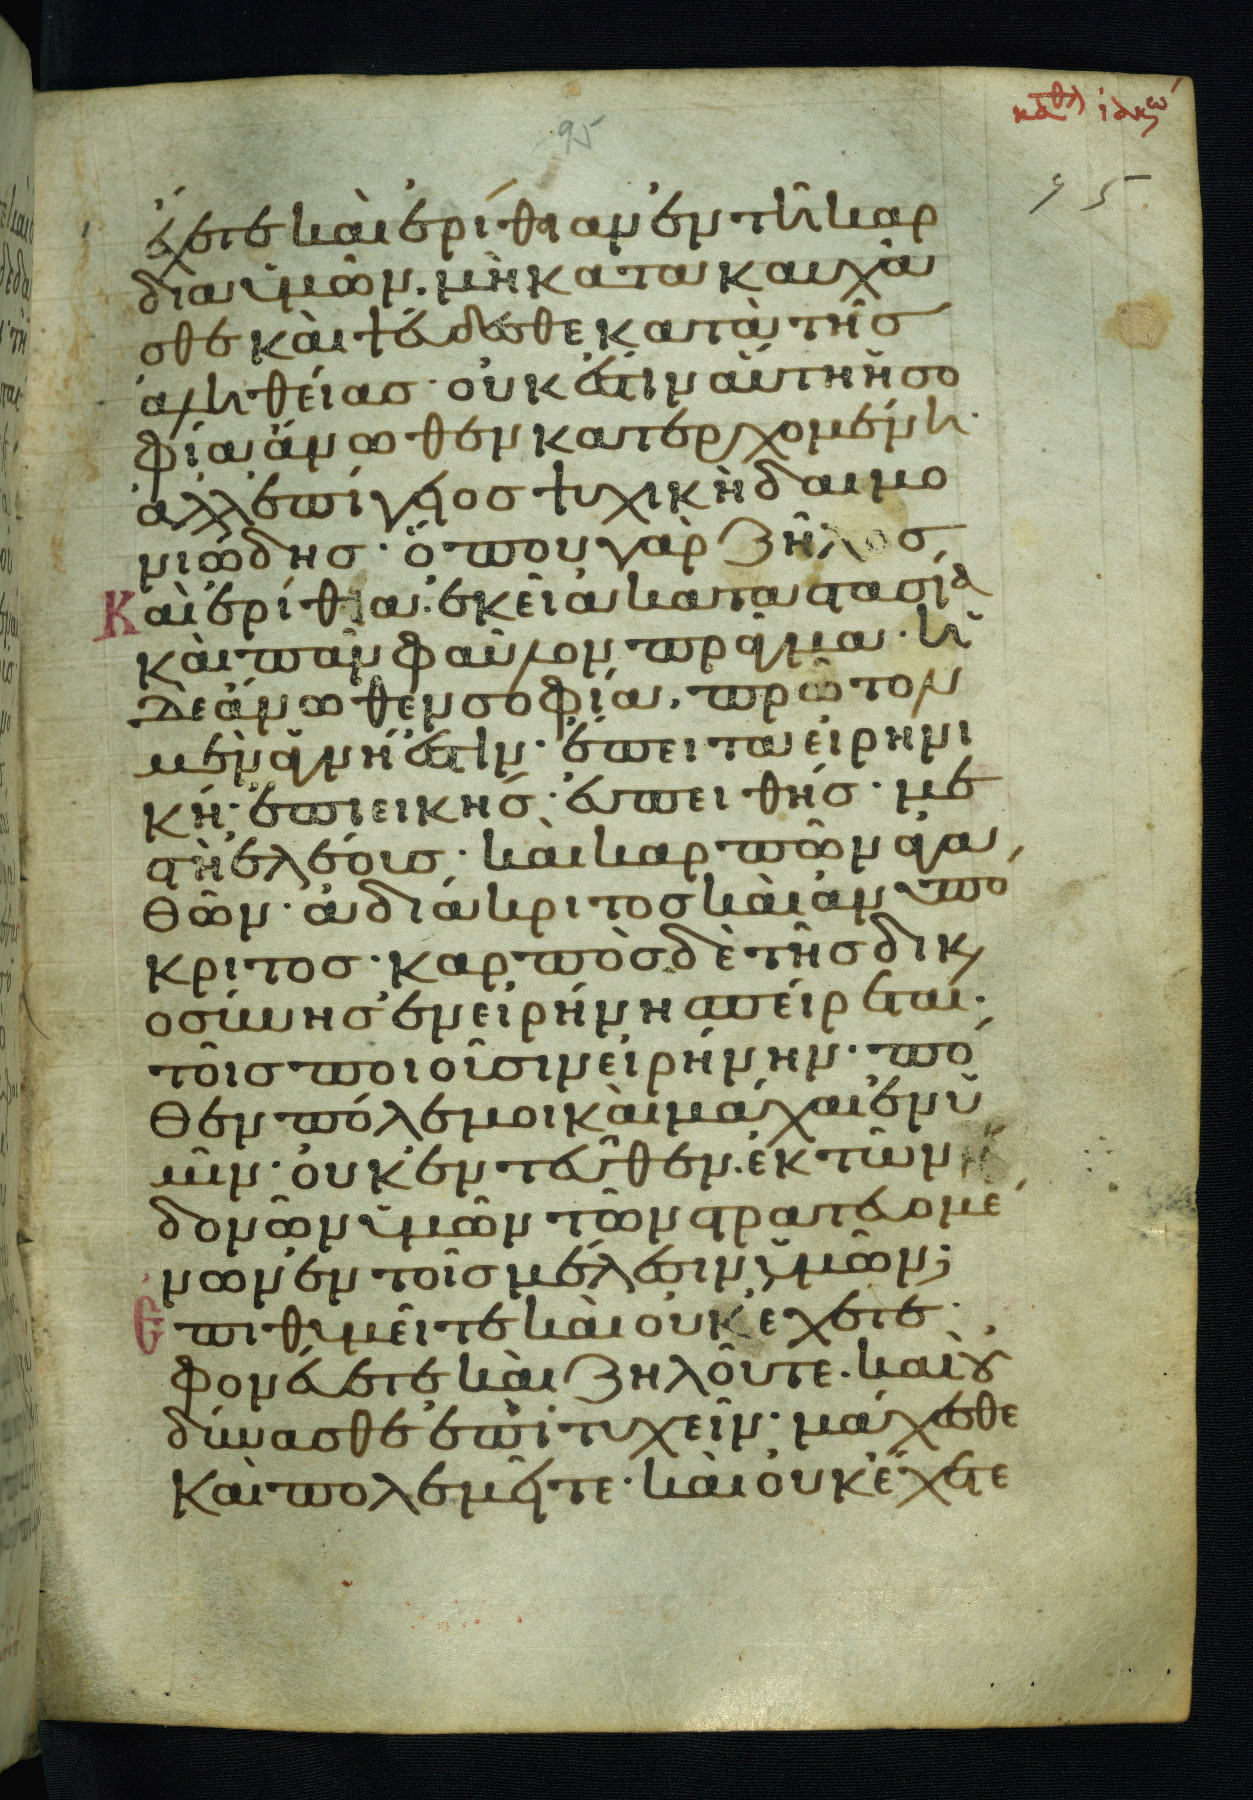 καθλ ἰακώ
95
95
ἔχετε καὶ ἐρίθιαν ἐν τῆ καρ
δία ὑμῶν. μὴ κατακαυχᾶ
σθε καὶ ψεύδεσθε κατὰ τῆσ
ἀληθείασ· οὐκ ἔστιν αὕτη ἡ σο
φία ἄνωθεν κατερχομένη·
ἀλλ' ἐπίγειοσ ψυχικὴ δαιμο
νιώδησ· ὅπου γὰρ ζῆλοσ
Καὶ ἐρίθια. ἐκεῖ ἀκαταστασία
καὶ πᾶν φαῦλον πρᾶγμα· ἡ
δὲ ἄνωθεν σοφία, πρῶτον
μὲν ἁγνή ἐστιν· ἔπειτα εἰρηνι
κή· ἐπιεικήσ· εὐπειθήσ· με
στὴ ἐλέουσ· καὶ καρπῶν ἀγα
θῶν· ἀδιάκριτοσ καὶ ἀνυπό
κριτοσ· καρπὸσ δὲ τῆσ δικ
οσύνησ ἐν εἰρήνη σπείρεται·
τοῖσ ποιοῦσιν εἰρήνην· πό
θεν πόλεμοι καὶ μάχαι ἐν ὑ
μῖν· οὐκ ἐντεῦθεν. ἐκ τῶν ἡ
δονῶν ὑμῶν τῶν στρατευομέ
νων ἐν τοῖσ μέλεσιν ὑμῶν;
Ἐπιθυμεῖτε καὶ οὐκ ἔχετε·
φονεύετε καὶ ζηλοῦτε. καὶ οὐ
δύνασθε ἐπιτυχεῖν· μάχεσθε
καὶ πολεμεῖτε· καὶ οὐκ ἔχετε